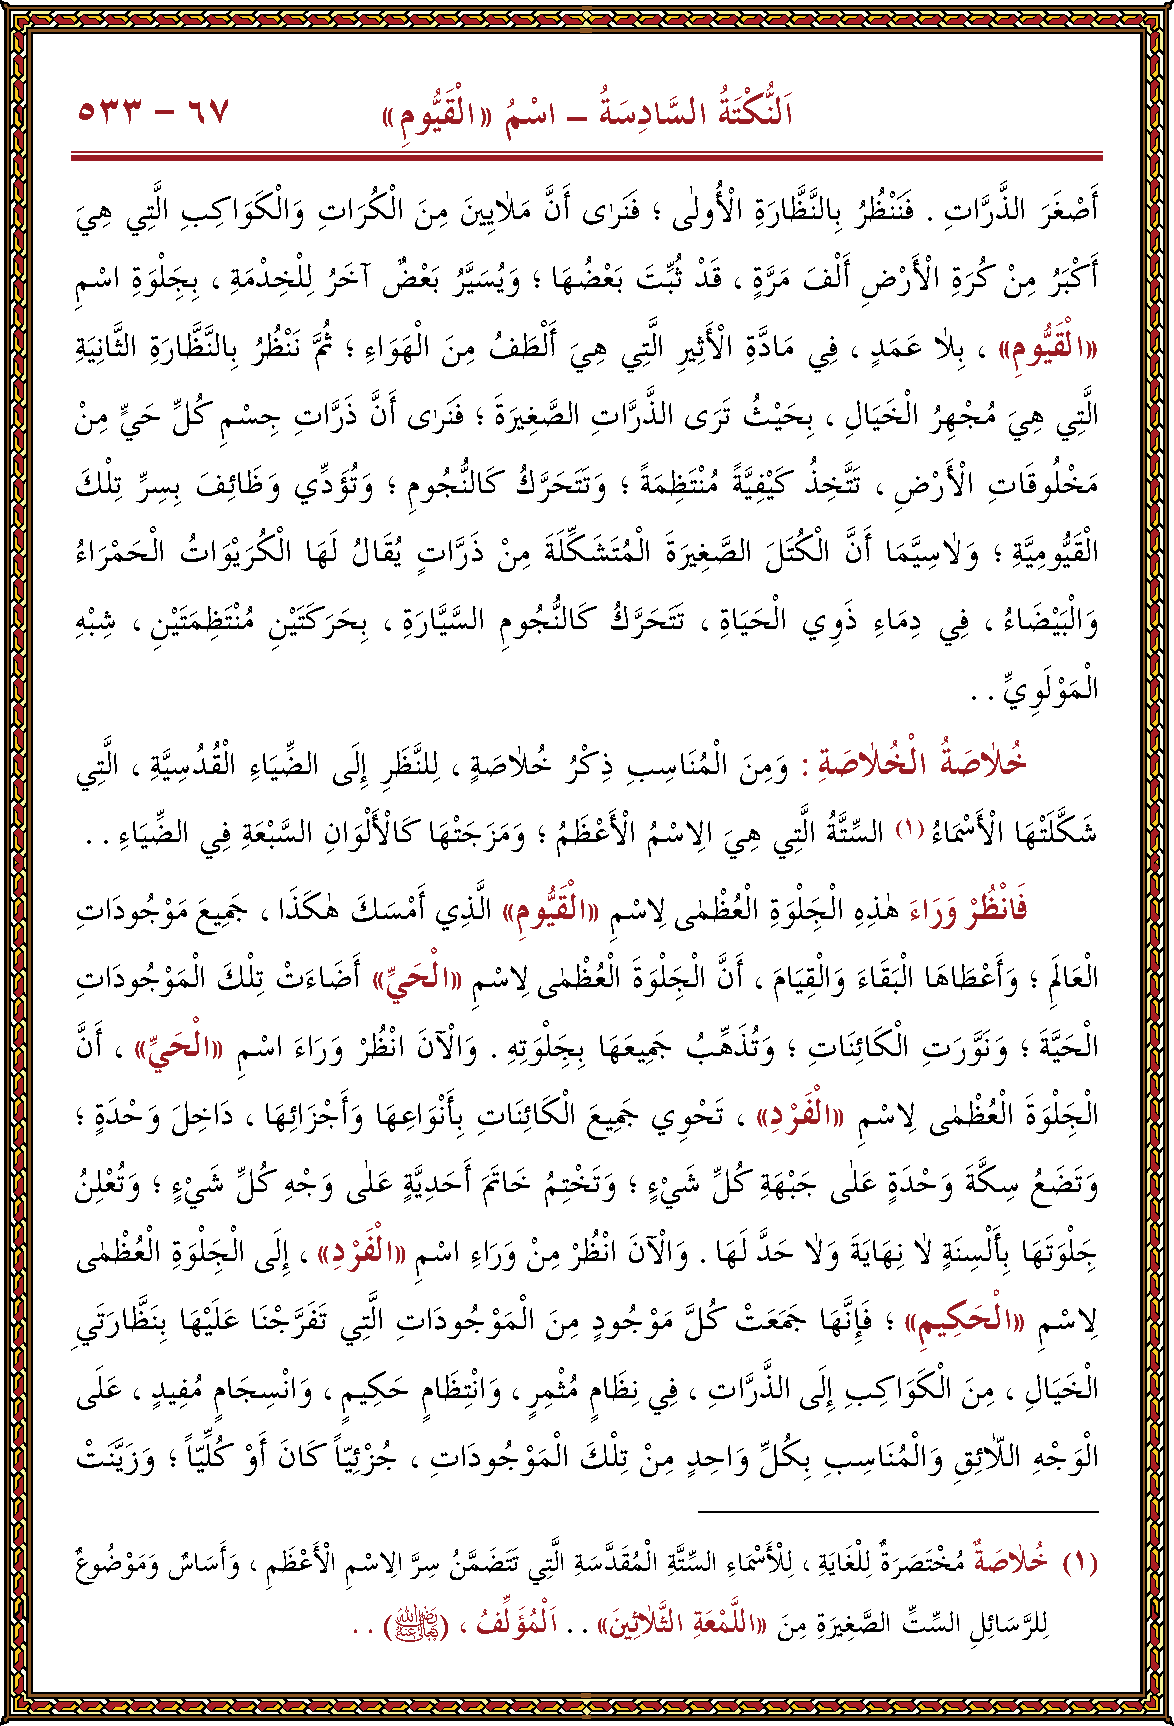 اَلنُّكْتَةُ السَّادِسَةُ – اسْمُ «الْقَيُّومِ» ٦٧ – ٥٣٣
أَصْغَرَ الذَّرَّاتِ . فَنَنْظُرُ بِالنَّظَّارَةِ الْأُولٰى ؛ فَنَرٰى أَنَّ مَلَايِينَ مِنَ الْكُرَاتِ وَالْكَوَاكِبِ الَّتِي هِيَ
أَكْبَرُ مِنْ كُرَةِ الْأَرْضِ أَلْفَ مَرَّةٍ ، قَدْ ثُبِّتَ بَعْضُهَا ؛ وَيُسَيَّرُ بَعْضٌ آخَرُ لِلْخِدْمَةِ ، بِجَلْوَةِ اسْمِ
«الْقَيُّومِ» ، بِلَا عَمَدٍ ، فِي مَادَّةِ الْأَثِيرِ الَّتِي هِيَ أَلْطَفُ مِنَ الْهَوَاءِ ؛ ثُمَّ نَنْظُرُ بِالنَّظَّارَةِ الثَّانِيَةِ
الَّتِي هِيَ مُجْهِرُ الْخَيَالِ ، بِحَيْثُ تَرَى الذَّرَّاتِ الصَّغِيرَةَ ؛ فَنَرٰى أَنَّ ذَرَّاتِ جِسْمِ كُلِّ حَيٍّ مِنْ
مَخْلُوقَاتِ الْأَرْضِ ، تَتَّخِذُ كَيْفِيَّةً مُنْتَظِمَةً ؛ وَتَتَحَرَّكُ كَالنُّجُومِ ؛ وَتُؤَدِّي وَظَائِفَ بِسِرِّ تِلْكَ
الْقَيُّومِيَّةِ ؛ وَلَاسِيَّمَا أَنَّ الْكُتَلَ الصَّغِيرَةَ الْمُتَشَكِّلَةَ مِنْ ذَرَّاتٍ يُقَالُ لَهَا الْكُرَيْوَاتُ الْحَمْرَاءُ
وَالْبَيْضَاءُ ، فِي دِمَاءِ ذَوِي الْحَيَاةِ ، تَتَحَرَّكُ كَالنُّجُومِ السَّيَّارَةِ ، بِحَرَكَتَيْنِ مُنْتَظِمَتَيْنِ ، شِبْهِ
الْمَوْلَوِيِّ . .
خُلَاصَةُ الْخُلَاصَةِ : وَمِنَ الْمُنَاسِبِ ذِكْرُ خُلَاصَةٍ ، لِلنَّظَرِ إِلَى الضِّيَاءِ الْقُدْسِيَّةِ ، الَّتِي
شَكَّلَتْهَا الْأَسْمَاءُ (١) السِّتَّةُ الَّتِي هِيَ الِاسْمُ الْأَعْظَمُ ؛ وَمَزَجَتْهَا كَالْأَلْوَانِ السَّبْعَةِ فِي الضِّيَاءِ . .
فَانْظُرْ وَرَاءَ هٰذِهِ الْجَلْوَةِ الْعُظْمٰى لِاسْمِ «الْقَيُّومِ» الَّذِي أَمْسَكَ هٰكَذَا ، جَمِيعَ مَوْجُودَاتِ
الْعَالَمِ ؛ وَأَعْطَاهَا الْبَقَاءَ وَالْقِيَامَ ، أَنَّ الْجَلْوَةَ الْعُظْمٰى لِاسْمِ «الْحَيِّ» أَضَاءَتْ تِلْكَ الْمَوْجُودَاتِ
الْحَيَّةَ ؛ وَنَوَّرَتِ الْكَائِنَاتِ ؛ وَتُذَهِّبُ جَمِيعَهَا بِجَلْوَتِهِ . وَالْآنَ انْظُرْ وَرَاءَ اسْمِ «الْحَيِّ» ، أَنَّ
الْجَلْوَةَ الْعُظْمٰى لِاسْمِ «الْفَرْدِ» ، تَحْوِي جَمِيعَ الْكَائِنَاتِ بِأَنْوَاعِهَا وَأَجْزَائِهَا ، دَاخِلَ وَحْدَةٍ ؛
وَتَضَعُ سِكَّةَ وَحْدَةٍ عَلٰى جَبْهَةِ كُلِّ شَيْءٍ ؛ وَتَخْتِمُ خَاتَمَ أَحَدِيَّةٍ عَلٰى وَجْهِ كُلِّ شَيْءٍ ؛ وَتُعْلِنُ
جَلْوَتَهَا بِأَلْسِنَةٍ لَا نِهَايَةَ وَلَا حَدَّ لَهَا . وَالْآنَ انْظُرْ مِنْ وَرَاءِ اسْمِ «الْفَرْدِ» ، إِلَى الْجَلْوَةِ الْعُظْمٰى
لِاسْمِ «الْحَكِيمِ» ؛ فَإِنَّهَا جَمَعَتْ كُلَّ مَوْجُودٍ مِنَ الْمَوْجُودَاتِ الَّتِي تَفَرَّجْنَا عَلَيْهَا بِنَظَّارَتَيِ
الْخَيَالِ ، مِنَ الْكَوَاكِبِ إِلَى الذَّرَّاتِ ، فِي نِظَامٍ مُثْمِرٍ ، وَانْتِظَامٍ حَكِيمٍ ، وَانْسِجَامٍ مُفِيدٍ ، عَلَى
الْوَجْهِ اللَّائِقِ وَالْمُنَاسِبِ بِكُلِّ وَاحِدٍ مِنْ تِلْكَ الْمَوْجُودَاتِ ، جُزْئِيّاً كَانَ أَوْ كُلِّيّاً ؛ وَزَيَّنَتْ
(١) خُلَاصَةٌ مُخْتَصَرَةٌ لِلْغَايَةِ ، لِلْأَسْمَاءِ السِّتَّةِ الْمُقَدَّسَةِ الَّتِي تَتَضَمَّنُ سِرَّ الِاسْمِ الْأَعْظَمِ ، وَأَسَاسٌ وَمَوْضُوعٌ
لِلرَّسَائِلِ السِّتِّ الصَّغِيرَةِ مِنَ «اللَّمْعَةِ الثَّلَاثِينَ» . . اَلْمُؤَلِّفُ ، (رضي الله تعالى عنه) . .